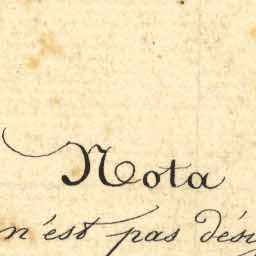 Nota
n'est pas dési